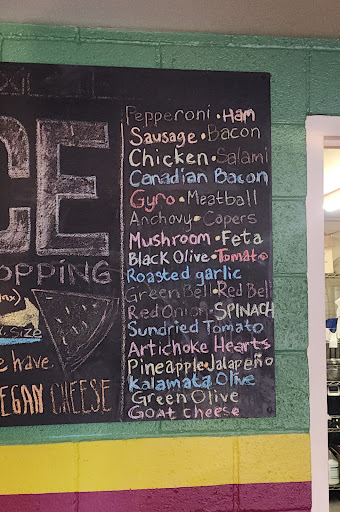 CE
OPPING
nx)
SIZE
e have
EGAN CHEESE
Pepperoni • Ham
Sausage • Bacon
Chicken • Salami
Canadian Bacon
Gyro • Meatball
Anchovy • Capers
Mushroom • Feta
Black Olive • Tomato
Roasted garlic
Green Bell • Red Bell
Red Onion • SPINACH
Sundried Tomato
Artichoke Hearts
Pineapple • Jalapeño
Kalamata Olive
Green Olive
Goat cheese